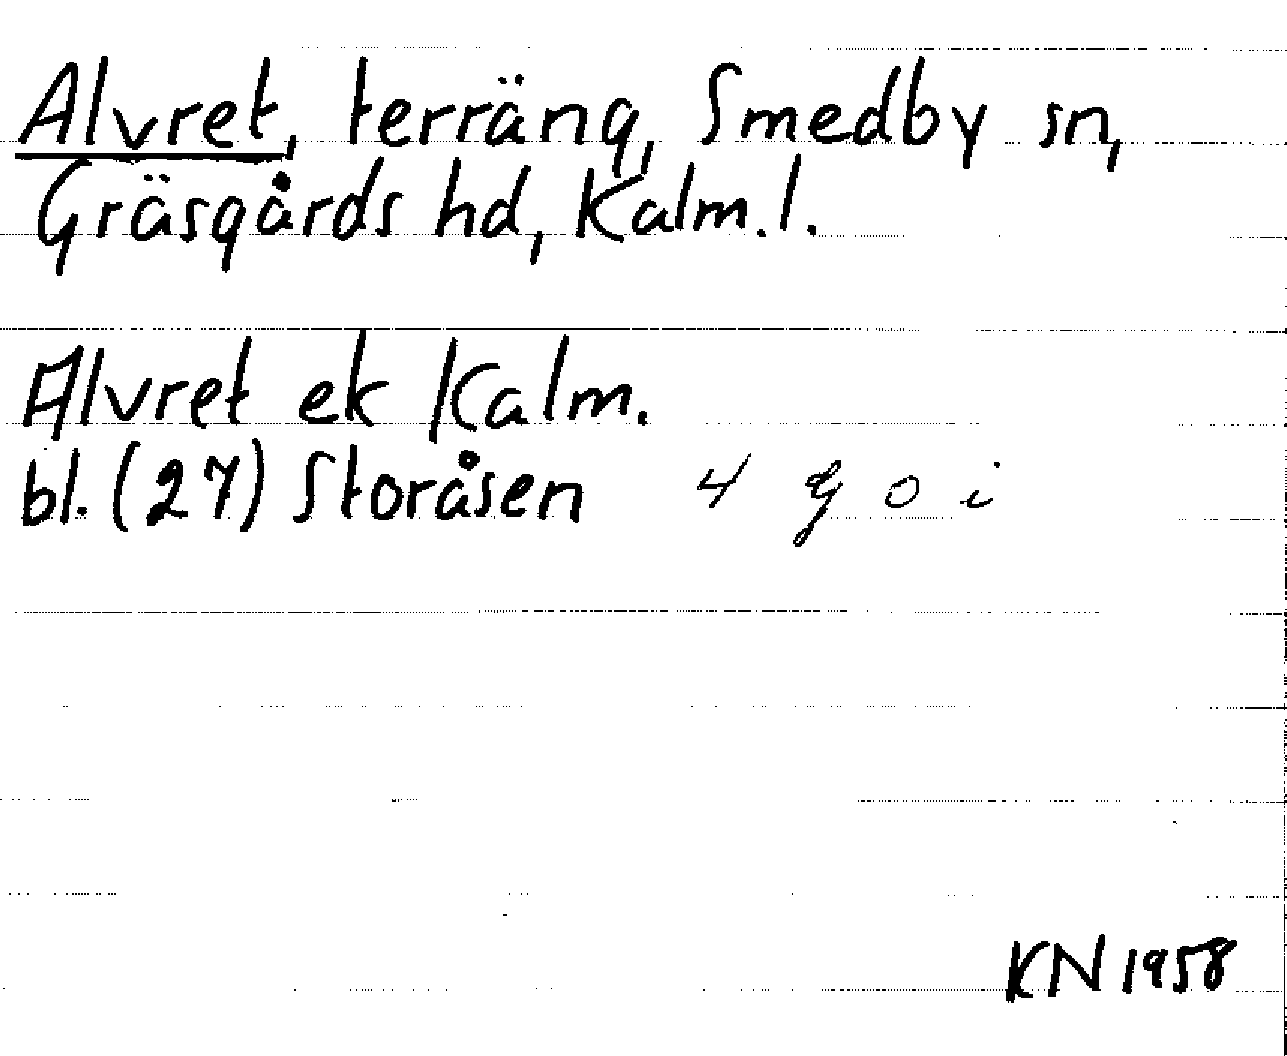 Alvret, terräng, Smedby sn,
Gräsgårds hd, Kalm.l.
Alvret ek Kalm.
bl. (27) Storåsen 4 g o i
KN 1958